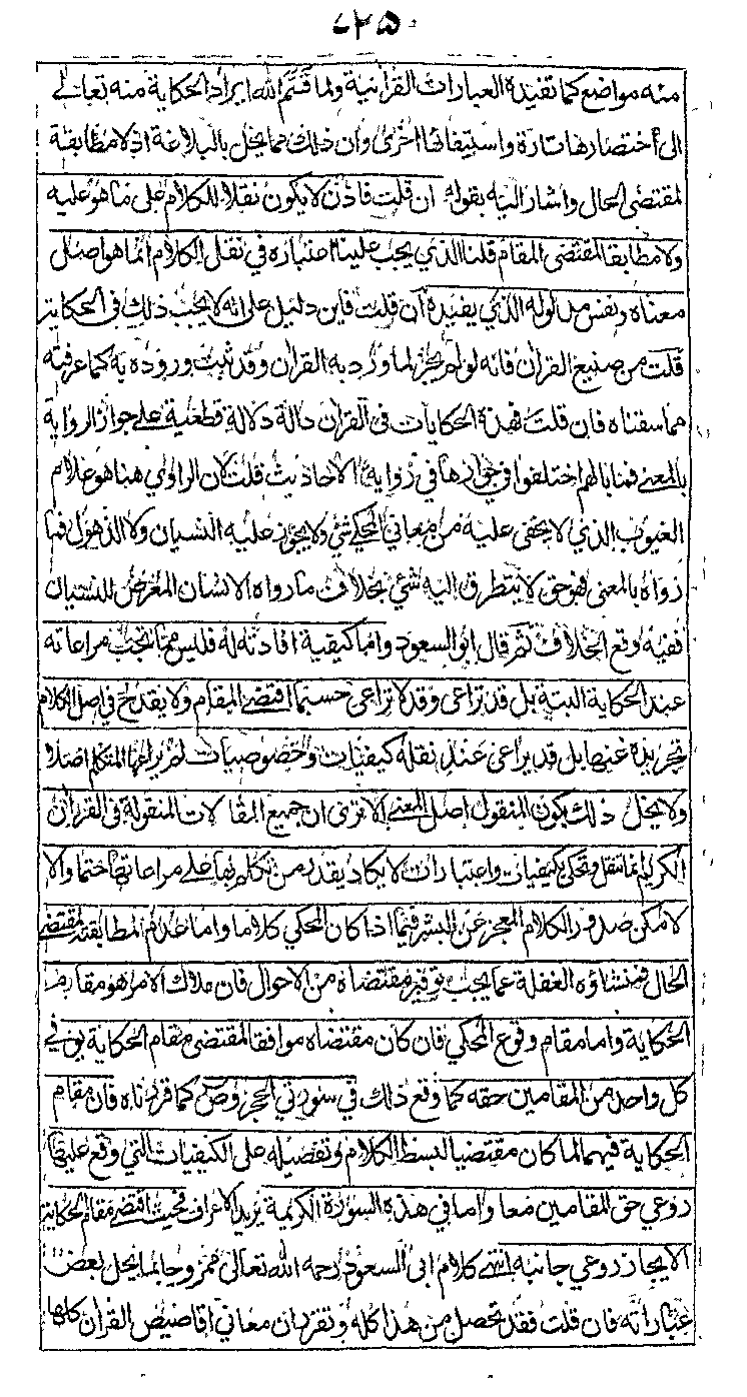 ٢٥
منه مواضع كما تفيدة العبارات القرآنية ولما قسم الله ايراد الحكاية منه تعالى
الى أختصارها تارة واستيفائها اخرى وان ذلك مما يخل بالبلاغة اذ لا مطابقة
لمقتضى الحال واشار اليه بقوله ان قلت فاذن لا يكون نقلا للكلام على ما هو عليه
ولا مطابقا لمقتضى المقام قلنا الذي يجب علينا اعتباره في نقل الكلام انما هو اصل
معناه ونفس مدلوله الذي يفيدة ان قلت فاين دليل على انه لا يجب ذلك في الحكاية
قلت من صنيع القران فانه لو لم يجز لما ورد به القران وقد ثبت وروده به كما عرفته
مما سقناه فان قلت فهذه الحكايات في القران دالة دلالة قطعية على جواز الرواية
بالمعنى فما بالهم اختلفوا في جوازها في رواية الاحاديث قلت لان الراوي هنا هو علام
الغيوب الذي لا يخفى عليه من معاني المحكي شئ ولا يجوز عليه النسيان ولا الذهول فما
رواه بالمعنى فهو حق لا يتطرق اليه شئ بخلاف ما رواه الانسان المعرض للنسيان
ففيه وقع الخلاف ثم قال ابو السعود واما كيفية افادته له فليس مما تجب مراعاته
عند الحكاية البتة بل قد تراعى وقد لا تراعى حسبما اقتضى المقام ولا يقدح في اصل الكلام
تجريده عنها بل قد يراعى عند نقله كيفيات وخصوصيات لم يراعها المتكلم اصلا
ولا يخل ذلك بكون المنقول اصل المعنى الا ترى ان جميع المقالات المنقولة في القران
الكريم انما تنقل وتحكى بكيفيات واعتبارات لا يكاد يقدر من تكلم بها على مراعاتها ختما والا
لامكن صدور الكلام المعجز عن البشر فيما اذا كان المحكي كلاما واما عدم المطابقة لمقتضى
الحال فمنشاؤه الغفلة عما يجب توفير مقتضاه من الاحوال فان ملاك الامر هو مقام
الحكاية واما مقام وقوع المحكي فان كان مقتضاه موافقا لمقتضى مقام الحكاية يوفي
كل واحد من المقامين حقه كما وقع ذلك في سورتي الحجر وص كما قررناه فان مقام
الحكاية فيهما لما كان مقتضيا لبسط الكلام وتفصيله على الكيفيات التي وقع عليها
روعي حق المقامين معا واما في هذه السورة الكريمة يريد الاعراف فحيث اقتضى مقام الحكاية
الايجاز روعي جانبه انتهى كلام ابى السعود رحمه الله تعالى بعض
عباراته فان قلت فقد تحصل من هذا كله وتقرر ان معاني اقاصيص القران كلها